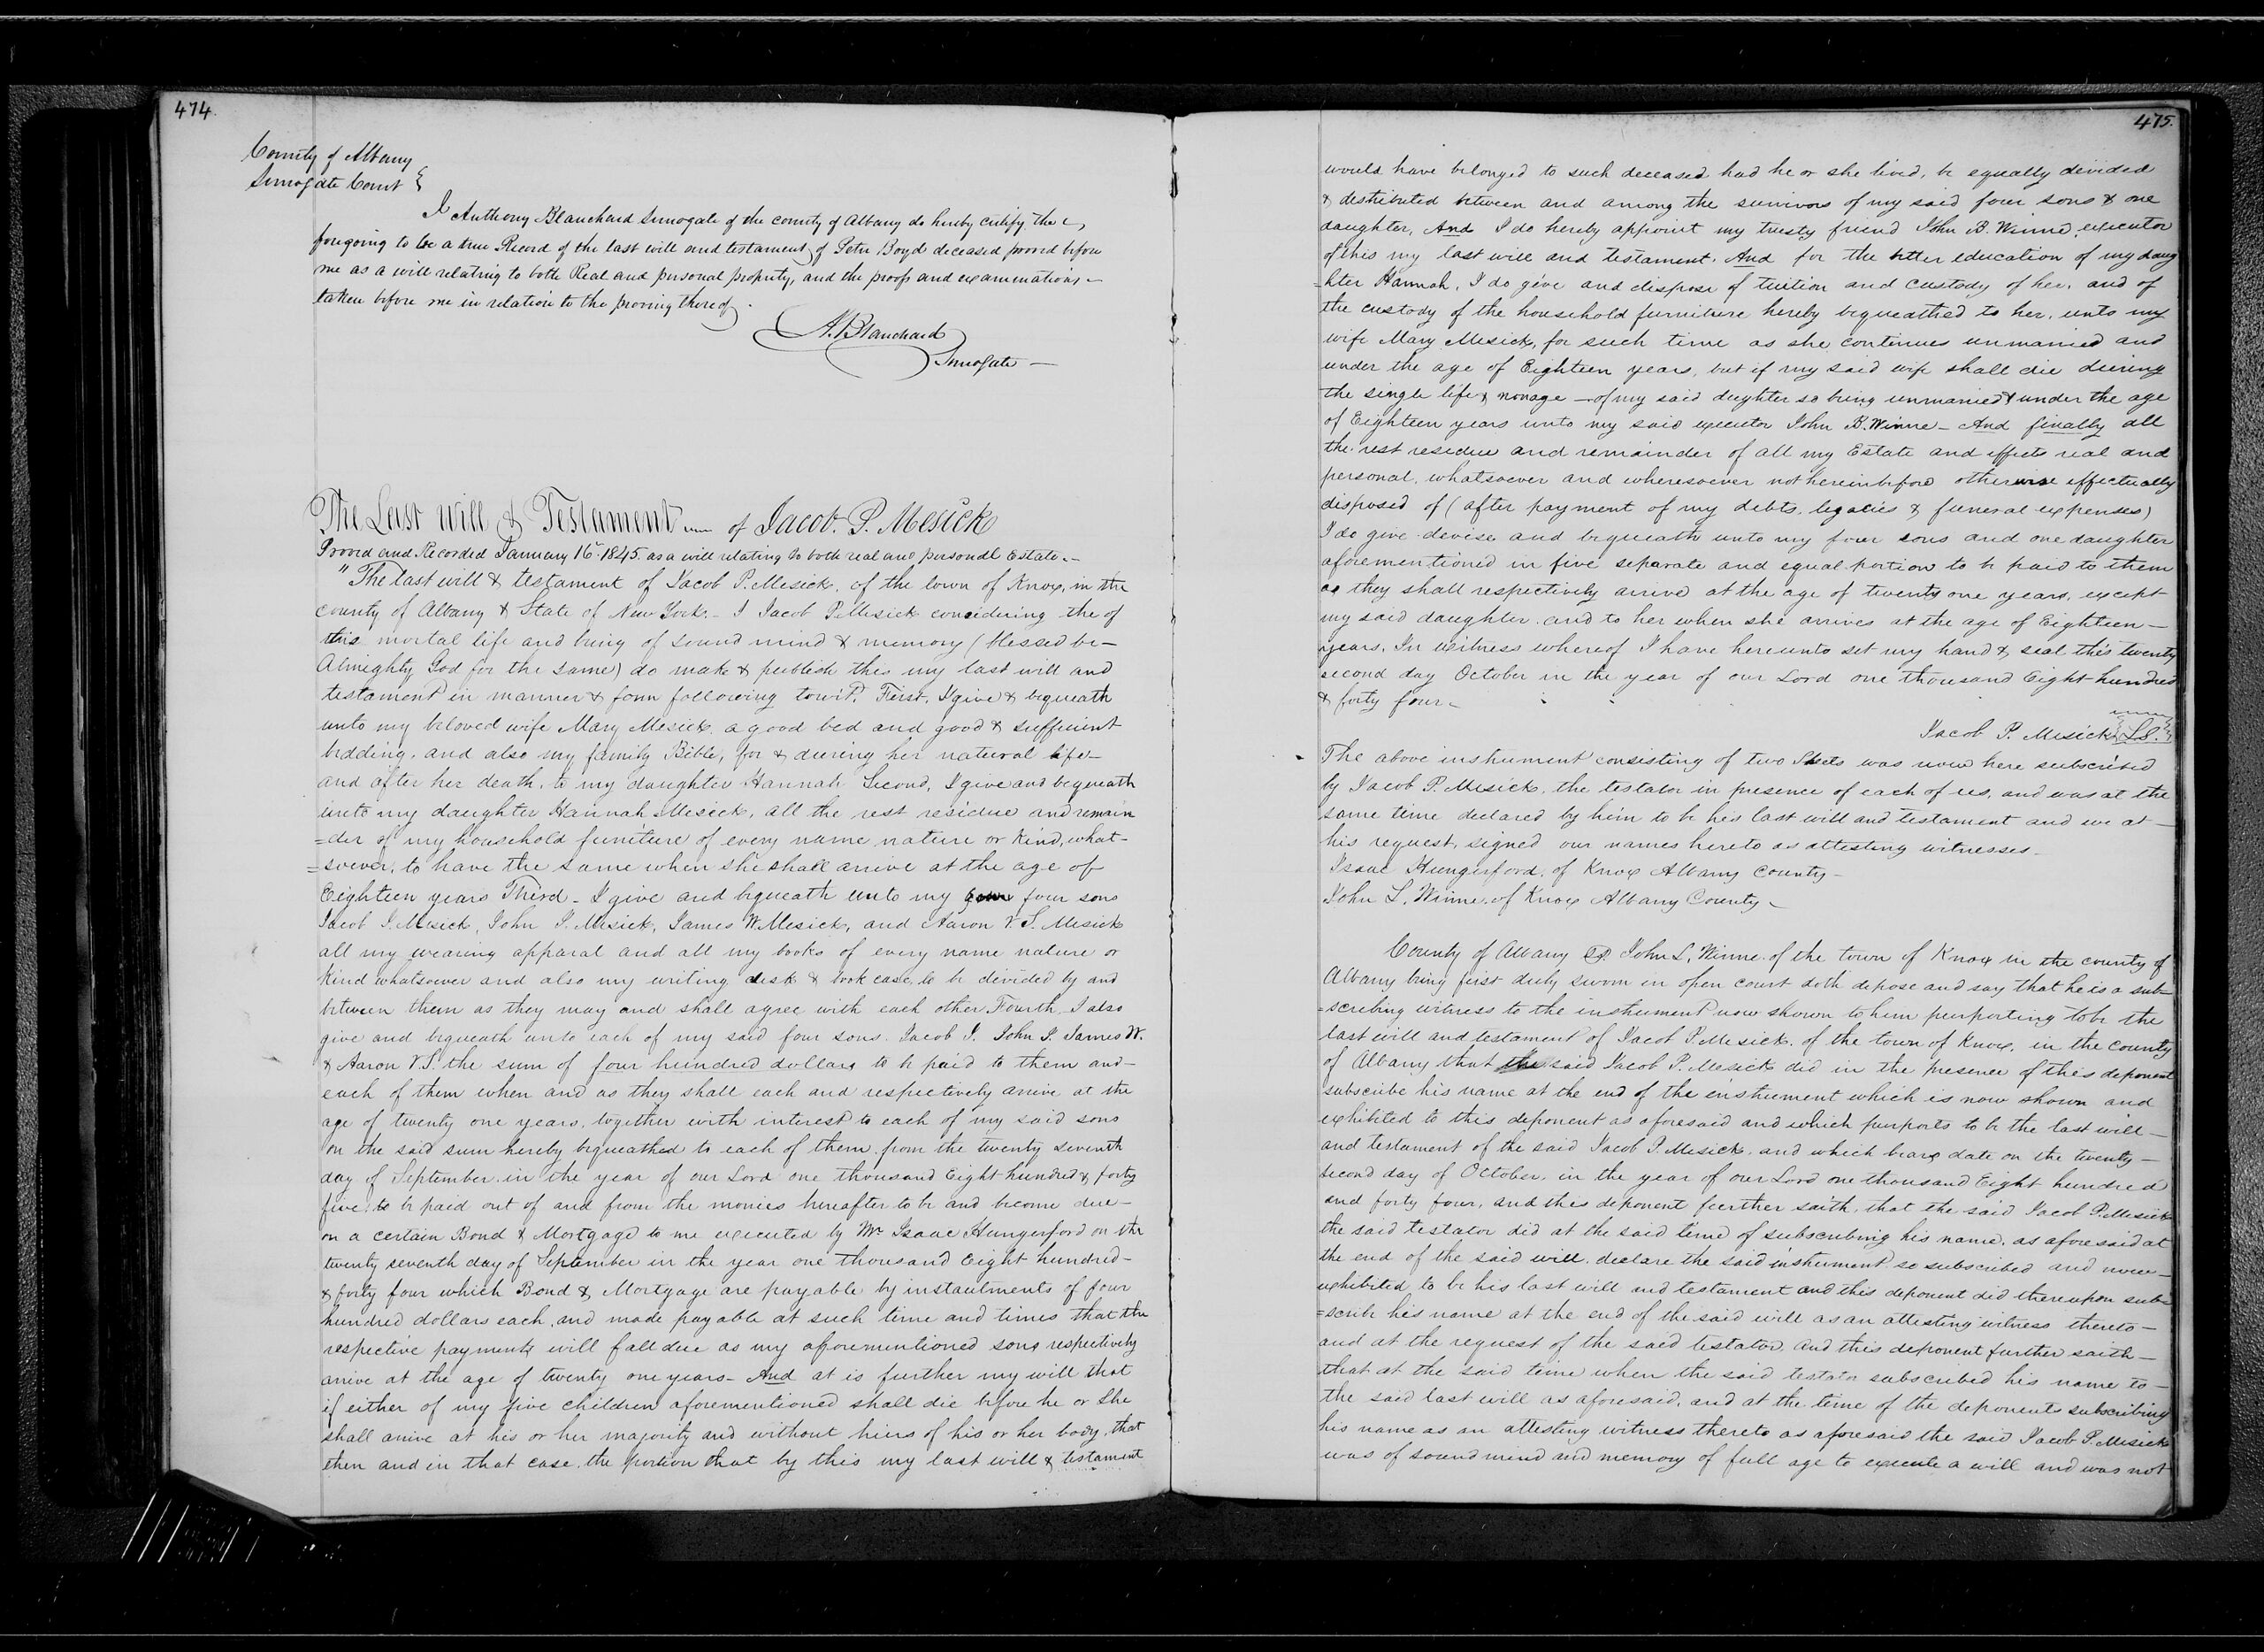 474.
County of Albany
Surrogate Court }
I Anthony Blanchard Surrogate of the county of Albany do hereby certify the
foregoing to be a true Record of the last will and testament of Peter Boyd deceased proved before
me as a will relating to both Real and personal property, and the proofs and examinations -
taken before me in relation to the proving thereof.
A. Blanchard
Surrogate -
The Last Will & Testament of Jacob. P. Mesick
Proved and Recorded January 16th 1845. as a will relating to both real and personal Estate.-
"The last will & testament of Jacob P. Mesick, of the town of Knox, in the
county of Albany & State of New York. - I Jacob P. Mesick considering the of
this mortal life and being of sound mind & memory (blessed be -
Almighty God for the same) do make & publish this my last will and
testament in manner & form following towit. First. I give & bequeath
unto my beloved wife Mary Mesick, a good bed and good & sufficient
bedding, and also my family Bible, for & during her natural life -
and after her death, to my daughter Hannah Second, I give and bequeath
unto my daughter Hannah Mesick, all the rest residue and remain
=der of my household furniture of every name nature or kind, what-
=soever, to have the same when she shall arrive at the age of
Eighteen years Third - I give and bequeath unto my four sons
Jacob I. Mesick, John I. Mesick, James W. Mesick, and Aaron V. S. Mesick
all my wearing apparal and all my books of every name nature or
kind whatsoever and also my writing desk & book case, to be divided by and
between them as they may and shall agree with each other Fourth, I also
give and bequeath unto each of my said four sons. Jacob I. John I. James W.
& Aaron V. S. the sum of four hundred dollars to be paid to them and -
each of them when and as they shall each and respectively arrive at the
age of twenty one years, together with interest to each of my said sons
on the said sum hereby bequeathed to each of them from the twenty seventh
day of September in the year of our Lord one thousand Eight hundred & forty
five, to be paid out of and from the monies hereafter to be and become due -
on a certain Bond & Mortgage to me executed by Mr. Isaac Hungerford on the
twenty seventh day of September in the year one thousand Eight hundred -
& forty four which Bond & Mortgage are payable by instaulments of four
hundred dollars each, and made payable at such time and times that the
respective payments will fall due as my aforementioned sons respectively
arrive at the age of twenty one years - And at is further my will that
if either of my five children aforementioned shall die before he or she
shall arrive at his or her majority and without hiers of his or her body, that
then and in that case, the portion that by this my last will & testament
475.
would have belonged to such deceased had he or she lived, be equally divided
& distributed between and among the survivors of my said four sons & one
daughter, And I do hereby appoint my trusty friend John B. Winne, executor
of this my last will and testament. And for the better education of my daug
=hter Hannah, I do give and dispose of tuition and custody of her, and of
the custody of the household furniture hereby bequeathed to her, unto my
wife Mary Mesick, for such time as she continues unmarried and
under the age of Eighteen years, but if my said wife shall die during
the single life & nonage - of my said daghter so being unmarried & under the age
of Eighteen years unto my said executor John B. Winne - And finally all
the rest residue and remainder of all my Estate and effects real and
personal, whatsoever and wheresoever not hereinbefore otherwise effectually
disposed of (after payment of my debts, legacies & funeral expenses)
I do give devise and bequeath unto my four sons and one daughter
aforementioned in five separate and equal portion to be paid to them
as they shall respectively arrive at the age of twenty one years, except
my said daughter and to her when she arrives at the age of Eighteen -
years. In witness whereof I have hereunto set my hand & seal this twenty
second day October in the year of our Lord one thousand Eight hundred
& forty four -
Jacob P. Mesick {L.S.}
The above instrument consisting of two Sheets was now here subscribed
by Jacob P. Mesick, the testator in presence of each of us, and was at the
same time declared by him to be his last will and testament and we at -
his request, signed our names hereto as attesting witnesses -
Isaac Hungerford, of Knox Albany County -
John L. Winne, of Knox Albany County -
County of Albany SS. John L. Winne of the town of Knox in the county of
Albany being first duly sworn in open court doth depose and say that he is a sub-
=scribing witness to the instrument now shown to him purporting to be the
last will and testament of Jacob P. Mesick, of the town of Knox, in the county
of Albany that the said Jacob P. Mesick did in the presence of this deponent
subscribe his name at the end of the instrument which is now shown and
exhibited to this deponent as aforesaid and which purports to be the last will -
and testament of the said Jacob P. Mesick, and which bears date on the twenty -
second day of October, in the year of our Lord one thousand Eight hundred
and forty four, and this deponent further saith, that the said Jacob P. Mesick
the said testator did at the said time of subscribing his name, as aforesaid at
the end of the said will, declare the said instrument so subscribed and now -
exhibited to be his last will and testament and this deponent did thereupon sub-
=scribe his name at the end of the said will as an attesting witness thereto -
and at the request of the said testator, and this deponent further saith -
that at the said time when the said testator subscribed his name to -
the said last will as aforesaid, and at the time of the deponents subscribing
his name as an attesting witness thereto as aforesaid the said Jacob P. Mesick
was of sound mind and memory of full age to execute a will and was not